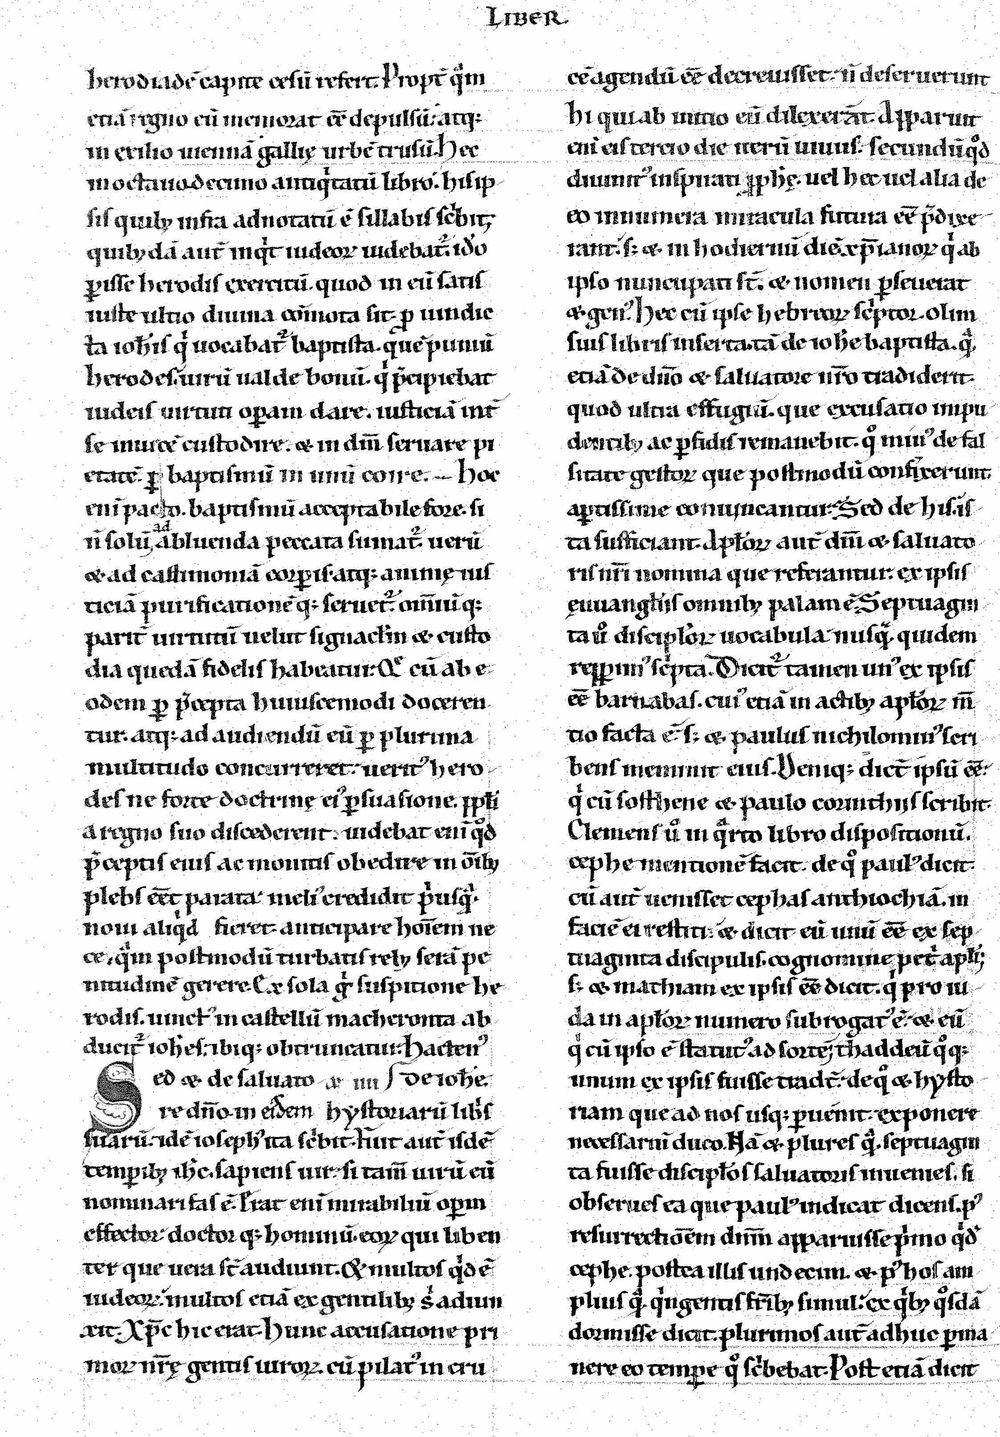 LIBER.
herodiadē capite cesū refert. Propt̄ q̄m
etiā regno eū memorat eē depulsū. atq;
in exilio uiennā gallię urbē trusū. Hec
in octauodecimo antiq̇tatū libro. his ip
sis quib; infra adnotatū ē sillabis sc̄bit;
quib;dā aut̄ inq̇t iudeoꝝ uidebat̄. id̄o
ꝑisse herodis exercitū. quod in eū satis
iuste ultio diuina cōmota sit. ꝓ uindic
ta ioh̄is q̇ uocabat̄ baptista. quē puniū
herodes. uirū ualde bonū. q̇ p̄cipiebat
iudeis uirtuti oꝑam dare. iusticiā int̄
se inuicē custodire. & in dm̄ seruare pi
etatē. ꝑ baptismū in unū coire. — hoc
eni pacto. baptismū acceptabile fore. si
n̄ solū ad abluenda peccata sumat̄. uerū
& ad castimoniā corꝑis. atq; animę ius
ticiā purificationēq; seruet̄. omniūq;
parit̄ uirtutū uelut signaclm̄ & custo
dia quedā fidelis habeatur. Q̄ cū ab e
odem ꝑ p̄cepta huiuscemodi doceren
tur. atq; ad audiendū eū ꝑ plurima
multitudo concurreret. uerit᾽ hero
des ne forte doctrinę ei᾽ ꝑsuasione. ppli
a regno suo discederent. uidebat eni q̊d
p̄ceptis eius ac monitis obedire in oīb;
plebs eēt parata. meli᾽ credidit ṗusq̄
noui aliq̇d fieret. anticipare hoīem ne
ce. q̄m postmodū turbatis reb; serā pe
nitudinē gerere. Ex sola g̊ suspitione he
rodis. uinct᾽ in castellū macheronta ab
ducit̄ iohēs. ibiq; obtruncatur. Hacten᾽
Sed & de saluato & iiii de iohe.
re dn̄o. in eisdem hystoriarū lib̄s
suarū. idē ioseph᾽ ita sc̄bit. Fuit aut̄ isdē
temꝑib; ihc̄. sapiens uir. si tam̄ uirū eū
nominari fas ē. Erat eni mirabiliū oꝑm
effector. doctor q; hominū. eoꝝ qui liben
ter que uera st̄ audiunt. & multos q̇dē
iudeoꝝ. multos etiā ex gentilib; s̄ adiun
xit. Xp̄c hic erat. hunc accusatione pri
moꝝ nr̄ę gentis uiroꝝ. cū pilat᾽ in cru
cē agendū eē decreuisset. n̄ deseruerunt
hi qui ab initio eū dilexerāt. Apparuit
eni eis tercio die iterū uiuus. secundū q̊d
diuinit᾽ inspirati ꝓphę. uel hec uel alia de
eo innumera miracula futura eē p̄dixe
rant. s; & in hodiernū diē. xp̄ianoꝝ q̇ ab
ipso nuncupati st̄. & nomen ꝑseuerat
& gen᾽. Hec cū ipse hebreoꝝ sc̄ptor. olim
suis libris inserta. tā de iohē baptista. q̄
etiā de dn̄o & saluatore nr̄o tradiderit.
quod ultra effugiū. que excusatio impu
dentib; ac ꝑfidis remanebit. q̊ min᾽ de fal
sitate gestoꝝ que postmodū confixerunt.
aꝑtissime conuincantur. Sed de his. is
ta sufficiant. Aplōꝝ aut̄ dm̄ & saluato
ris nr̄i nomina que referantur. ex ipsis
euuangliis omnib; palam ē. Septuagin
ta ů disciploꝝ uocabula. nusq̄ quidem
repperim᾽ sc̄pta. Dicit̄ tamen un᾽ ex ipsis
eē barnabas. cui᾽ etiā in actib; aplōꝝ m̄
tio facta ē. s; & paulus nichilomin᾽ scri
bens meminit eius. Deniq; dict̄ ipsū eē.
q̇ cū sosthene & paulo corinthiis scribit.
Clemens ů in q̄rto libro dispositionū.
cephe mentionē facit. de q̊ paul᾽ dicit.
cū aut̄ uenisset cephas anthiochiā. in
faciē ei restiti. & dicit eū unū eē ex sep
tuaginta discipulis. cognomine pet̄ apli;
s; & mathiam ex ipsis eē dicit. q̇ pro iu
da in aplōꝝ numero subrogat᾽ ē. & eū
q̇ cū ipso ē statut᾽ ad sortē. thaddeū q̊q;
unum ex ipsis fuisse tradt̄. de q̊ & hysto
riam que ad nos usq; ꝑuenit. exponere
necessariū duco. Nā & plures q̄ septuagin
ta fuisse disciplōs saluatoris inuenies. si
obserues ea que paul᾽ indicat dicens. p᾽
resurrectiōem dnm̄ apparuisse ṗmo q̇dē
cephe. postea illis undecim. & p᾽ hos am
plius q̄ q̇ngentis frīb; simul. ex q̇b; q̊sdā
dormisse dicit. plurimos aut̄ adhuc ꝑma
nere eo temꝑe q̊ sc̄bebat. Post etiā dicit